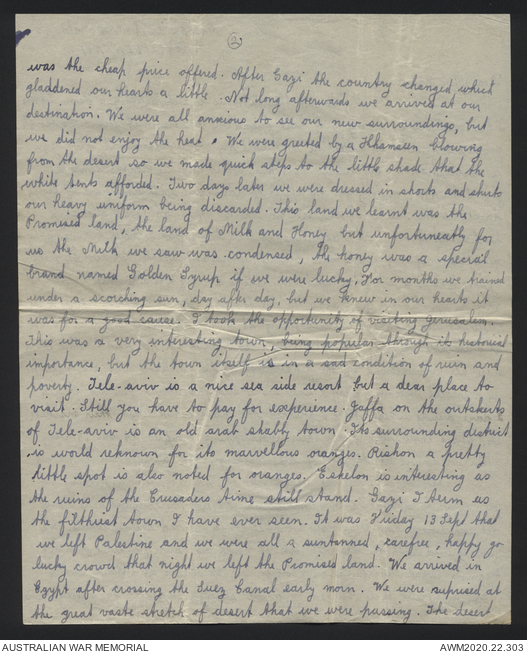 (2)
was the cheap price offered. After Gazi the country changed which
gladdened our hearts a little. Not long afterwards we arrived at our
destination. We were all anxious to see our new surroundings, but
we did not enjoy the heat. We were greeted by a Khamseen blowing
from the desert so we made quick steps to the little shade that the
white tents afforded. Two days later we were dressed in shorts and shirts
our heavy uniform being discarded. This land we learnt was the
Promised land, the land of Milk and Honey but unfortuneatly for
us the Milk we saw was condensed, the honey was a special
brand named Golden Syrup if we were lucky. For months we trained
under a scorching sun, day after day, but we knew in our hearts it
was for a good cause. I took the opportunity of visiting Jerusalem.
This was a very interesting town, being popular through its historical
importance, but the town itself is in a sad condition of ruin and
poverty. Tele-aviv is a nice sea side resort but a dear place to
visit. Still you have to pay for experience. Jaffa on the outskirts
of Tele-aviv is an old arab shabby town. Its surrounding district
is world reknown for its marvellous oranges. Rishon a pretty
little spot is also noted for oranges. Eskelon is interesting as
the ruins of the Crusaders time still stand. Gazi I term as
the filthiest town I have ever seen. It was Friday 13 Sept that
we left Palestine and we were all a suntanned, carefree, happy go
lucky crowd that night we left the Promised land. We arrived in
Egypt after crossing the Suez Canal early morn. We were suprised at
the great vaste stretch of desert that we were passing. The desert
AUSTRALIAN WAR MEMORIAL
AWM2020.22.303